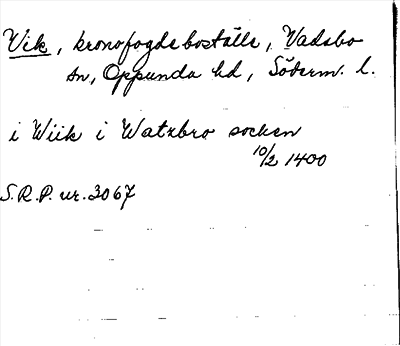 Vik, kronofogdeboställe, Vadsbo
sn, Oppunda hd, Söderm. l.
i Wiik i Watzbro socken
10/2 1400
S.R.P. nr. 3067